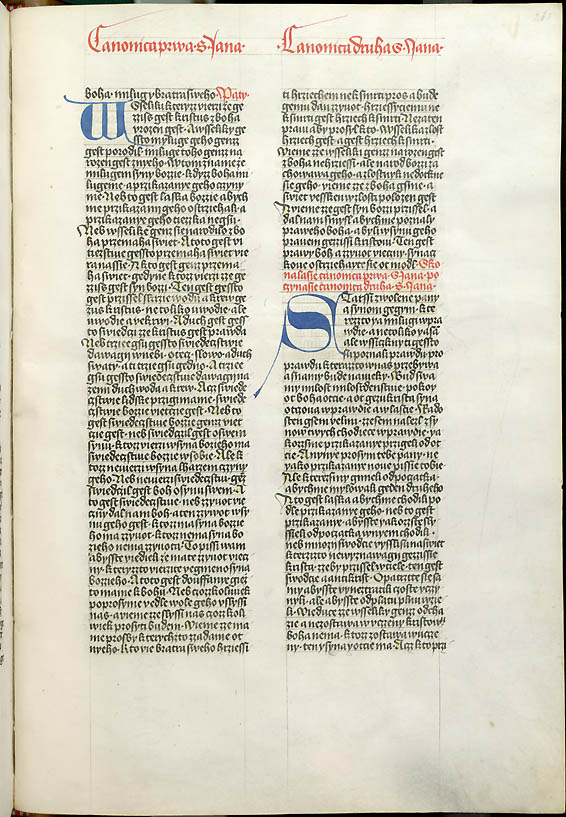 Canonica prwa · S · Jana ·
boha · milug y bratra sweho · Paty ·
Wsseliky kteryz vierzi ze ge
zzis gest kristus z boha
vrozen gest · A wsseliky ge
ssto myluge geho genz
gest porodil · miluge toho genz na
rozen gest z nyeho · W tem zname ze
milugem syny bozie · kdyz boha mi
lugeme · a przikazanye geho czyny
me · Neb to gest laska bozie abych
me przikazani geho ostrziehali · a
przikazanye geho tiezka negsu ·
Neb wsselike genz sie narodilo z bo
ha przemaha swiet · A toto gest vi
tiezstwie gessto przemaha swiet vie
ra nassie · N kto gest genz przema
ha swiet · gedyne ktoz vierzi ze ge
zzis gest syn bozi · Ten gest gessto
gest przissel skrzie wodu a krew ge
zus kristus · ne toliko v wodie · ale
v wodie a ve krwi · A duch gest gess
to swiedczi ze kristus gest prawda
Neb trzie gsu gessto swiedecztwie
dawagi w nebi · otecz · slowo · a duch
swaty · a ti trzie gsu gedno · A trzie
gsu gessto swiedecztwie dawagi na
zemi duch woda a krew · Acz swiede
cztwie lidske przigimame · swiede
cztwie bozie vietczie gest · Neb to
gest swiedecztwie bozie genz viet
czie gest · neb swiedczil gest o swem
synu · ktoz vierzi w syna bozieho ma
swiedecztwie bozie w sobie · Ale k
toz newierzi synu lharzem czyny
geho · Neb newierzi swiedecztwu · gez
swiedczil gest boh o synu swem · A
toto gest swiedecztwie · neb zywot vie
czny dal nam boh · a ten zywot w sy
nu geho gest · ktoz ma syna bozie
ho ma zywot · ktoz nema syna bo
zieho nema zywota · To pissi wam
abysste viedieli ze mate zywot viecz
ny · kterzyzto vierzite ve gmeno syna
bozieho · A toto gest douffanye gez
to mame k bohu · Neb czozkoliwiek
poprosyme vedle wole geho vslyssi
nas · a vieme ze slyssi nas czozkoli
wiek prosyti budem · Wieme ze ma
me prosby kterychzto zadame ot
nyeho · Kto vie bratra sweho hrziessi
Canonica druha · S · Jana ·
ti hrziechem ne k smrti pros a bude
gemu dan zywot · hrziessyciemu ne
k smrti gest hrziech k smrti · Ne za ten
prawi aby prosyl kto · Wsselika zlost
hrziech gest · a gest hrziech k smrti ·
Wieme ze wsseliky genz narozen gest
z boha nehrziessi · ale narod bozi za
chowawa geho · a zlostnyk nedotkne
sie geho · vieme ze z boha gsme · a
swiet vessken w zlosti polozen gest
N vieme ze gest syn bozi przissel · a
dal nam smysl abychme poznali
praweho boha · a byli w synu geho
prawem gezissi kristowi · Ten gest
prawy boh · a zywot vieczny · synacz
kowe ostrziehayte sie ot modl · Sko
nala sie canonica prwa · S · Jana · po
czyna sie canonica druha · S · Jana ·
Starssi zwolene pany
a synom gegym · kte
rezzto ya milugi w pra
wdie · a ne toliko ya sam
ale y wssiczkny ti gessto
su poznali prawdu pro
prawdu kterazzto w nas przebywa
a s nami bude na wieky · Bud s wa
my milost milosrdenstwie · pokoy
ot boha otcie · a ot gezu krista syna
otczowa w prawdie a w lasce · Rado
sten gsem velmi · ze sem nalezl z sy
now twych chodiece w prawdie · ya
kozsme przikazanye prigeli od ot
cie · A nynye prosym tebe pany · ne
yako przikazanye nowe pissie tobie
Ale kterezz sy gmieli od poczatka
abychme mylowali geden druheho
N toto gest laska abychme chodili po
dle przikazanye geho · neb to gest
przikazanye · abysste yakozste sly
ssieli od poczatka w nyem chodili ·
neb mnozy swodcie vyssli su na swiet
kterzyzto newyznawagi gezissie
krista · zeby przissel w tiele · ten gest
swodcie a antikrist · Opatrzte sie sa
my abysste ·
ky · Wieducz ze wsseliky genz odcha
zie a nezostawa w vczeny kristow
boha nema · ktoz zostawa w vcze
ny · ten y syna y otcie ma · Acz kto przi